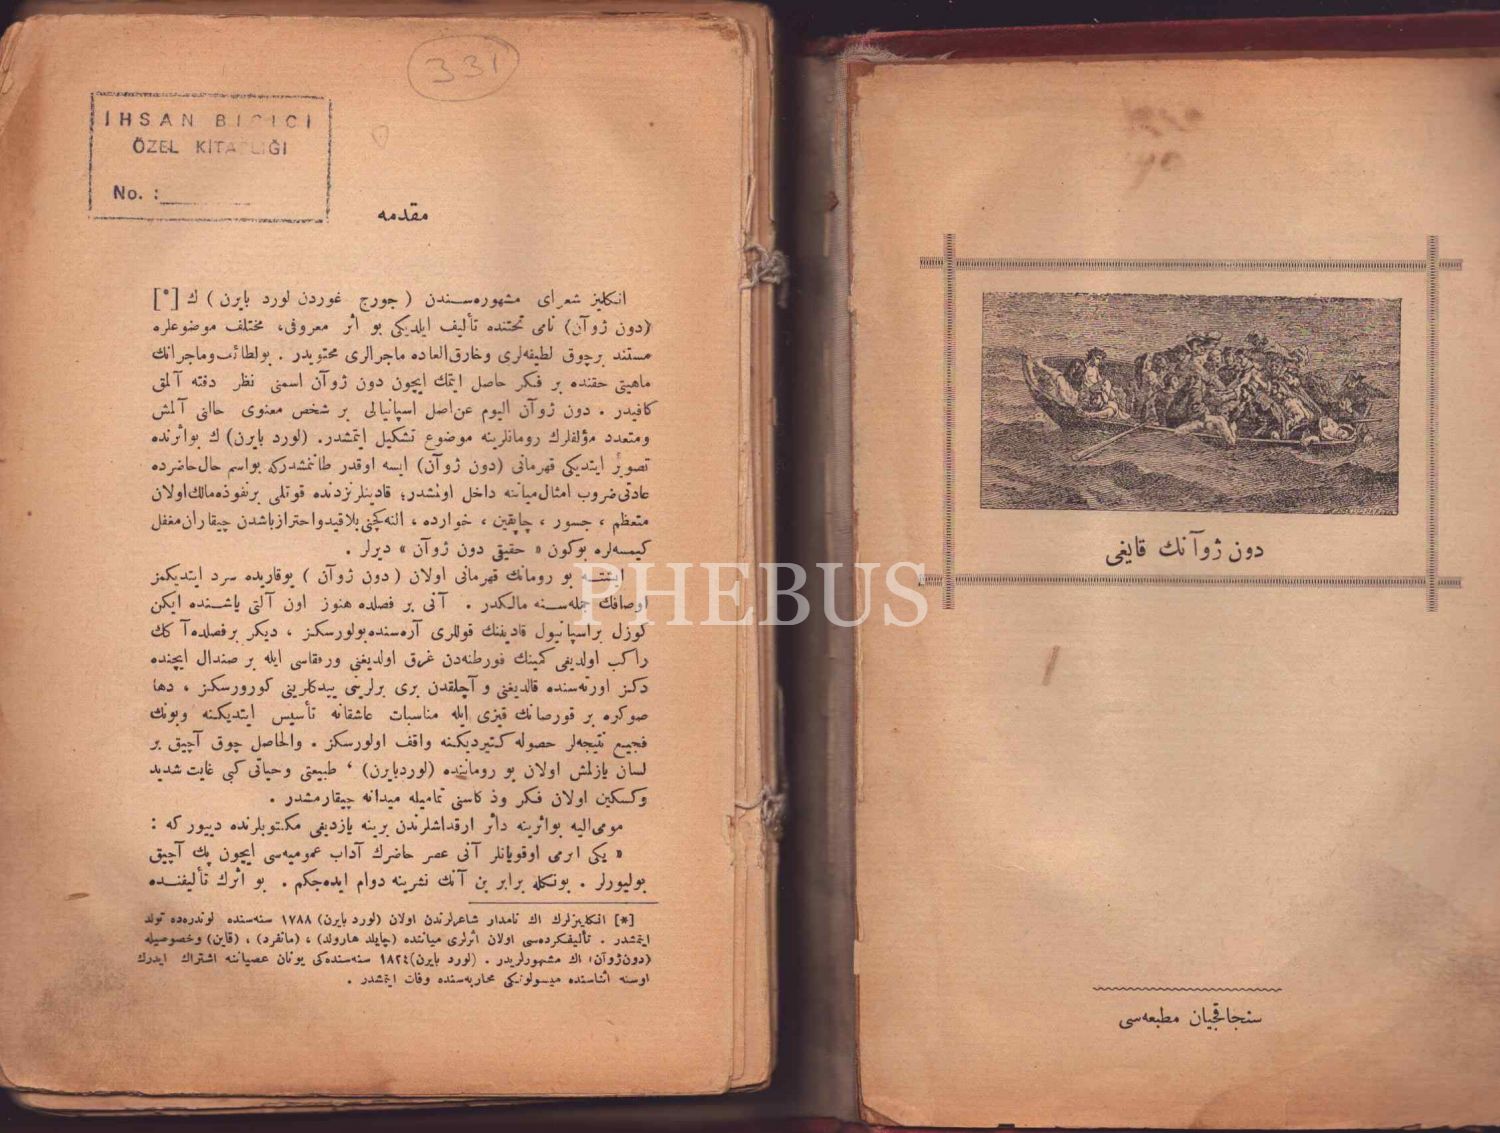 331
İHSAN BİÇİCİ
ÖZEL KİTAPLIĞI
No. :
مقدمه
انكليز شعرای مشهوره‌سندن ( جورج غوردن لورد بايرن ) ك [*]
(دون ژوآن) نامی تحتنده تأليف ايلديكی بو اثر معروفی، مختلف موضوعلره
مستند برچوق لطيفه‌لری وخارق‌العاده ماجرالری محتويدر . بولطائف‌وماجرانك
ماهيتی حقنده بر فكر حاصل ايتمك ايچون دون ژوآن اسمنی نظر دقته آلمق
كافيدر . دون ژوآن اليوم عن‌اصل اسپانيالی بر شخص معنوی حالنی آلمش
ومتعدد مؤلفلرك رومانلرينه موضوع تشكيل ايتمشدر. (لورد بايرن) ك بواثرنده
تصوير ايتديكی قهرمانی (دون ژوآن) ايسه اوقدر طانمشدركه بواسم حال‌حاضرده
عادتی‌ضروب امثال‌ميانه داخل اولمشدر؛ قادينلرنزدنده قوتلی برنفوذه‌مالك‌اولان
متعظم ، جسور ، چاپقين ، خوارده ، النه‌كچنی‌بلاقيدواحترازباشدن چيقاران‌مغفل
كيمسه‌لره بوكون « حقيقی دون ژوآن » ديرلر .
ايشته بو رومانك قهرمانی اولان ( دون ژوآن ) يوقاريده سرد ايتديكمز
اوصافك جمله‌سنه مالكدر . آنی بر فصلده هنوز اون آلتی ياشنده ايكن
كوزل براسپانيول قادينك قوللری آره‌سنده‌بولورسكز ، ديكر برفصلده‌آ كك
راكب اولديغی كمينك فورطنه‌دن غرق اولديغنی ورفقاسی ايله بر صندال ايچنده
دكز اورته‌سنده قالديغنی و آچلقدن بری برلرينی ييدكلرينی كورورسكز ، دها
صوكره بر قورصانك قيزی ايله مناسبات عاشقانه تأسيس ايتديكنه وبونك
فجيع نتيجه‌لر حصوله كتيرديكنه واقف اولورسكز . والحاصل چوق آچيق بر
لسان يازلمش اولان بو رومانده (لوردبايرن) ، طبيعتی وحياتی كبی غايت شديد
وكسكين اولان فكر وذكاسنی تماميله ميدانه چيقارمشدر .
مومی‌اليه بواثرينه دائر ارقداشلرندن برينه يازديغی مكتوبلرنده دييور كه :
« يكی اثرمی اوقويانلر آنی عصر حاضرك آداب عموميه‌سی ايچون پك آچيق
بوليورلر . بونكله برابر بن آنك نشرينه دوام ايده‌جكم . بو اثرك تأليفنده
[*] انكليزلرك اك نامدار شاعرلرندن اولان (لورد بايرن) ١٧٨٨ سنه‌سنده لوندره‌ده تولد
ايتمشدر . تأليفكرده‌سی اولان اثرلری ميانده (چايلد هارولد) ، (مانفرد) ، (قاين) وخصوصيله
(دون‌ژوآن) اك مشهورلريدر . (لورد بايرن)١٨٢٤ سنه‌سنده‌كی يونان عصياننه اشتراك ايدرك
اوسنه اثناسنده ميسولونكی محاربه‌سنده وفات ايتمشدر .
دون ژوآنك قايغی
سنجاقجيان مطبعه‌سی
PHEBUS